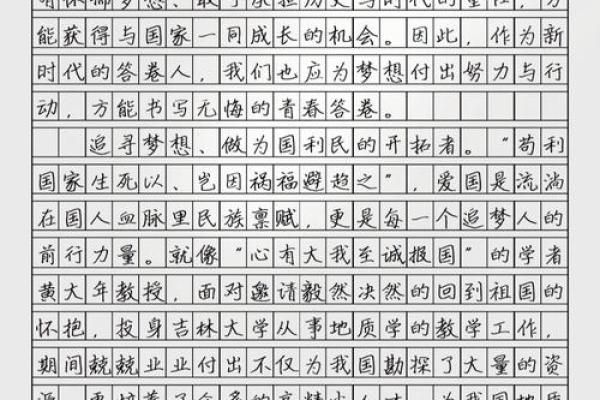 有怀揣梦想、敢于承担历史与时代的重任，方
能获得与国家一同成长的机会。因此，作为新
时代的答卷人，我们也应为梦想付出努力与行
动，方能书写无悔的青春答卷。
追寻梦想、做为国利民的开拓者。“苟利
国家生死以、岂因祸福避趋之”，爱国是流淌
在国人血脉里民族禀赋，更是每一个追梦人的
前行力量。就像“心有大我至诚报国”的学者
黄大年教授，面对邀请毅然决然的回到祖国的
怀抱，投身吉林大学从事地质学的教学工作，
期间兢兢业业付出不仅为我国勘探了大量的资
源，更培养了众多的高精尖人才，为我国地质